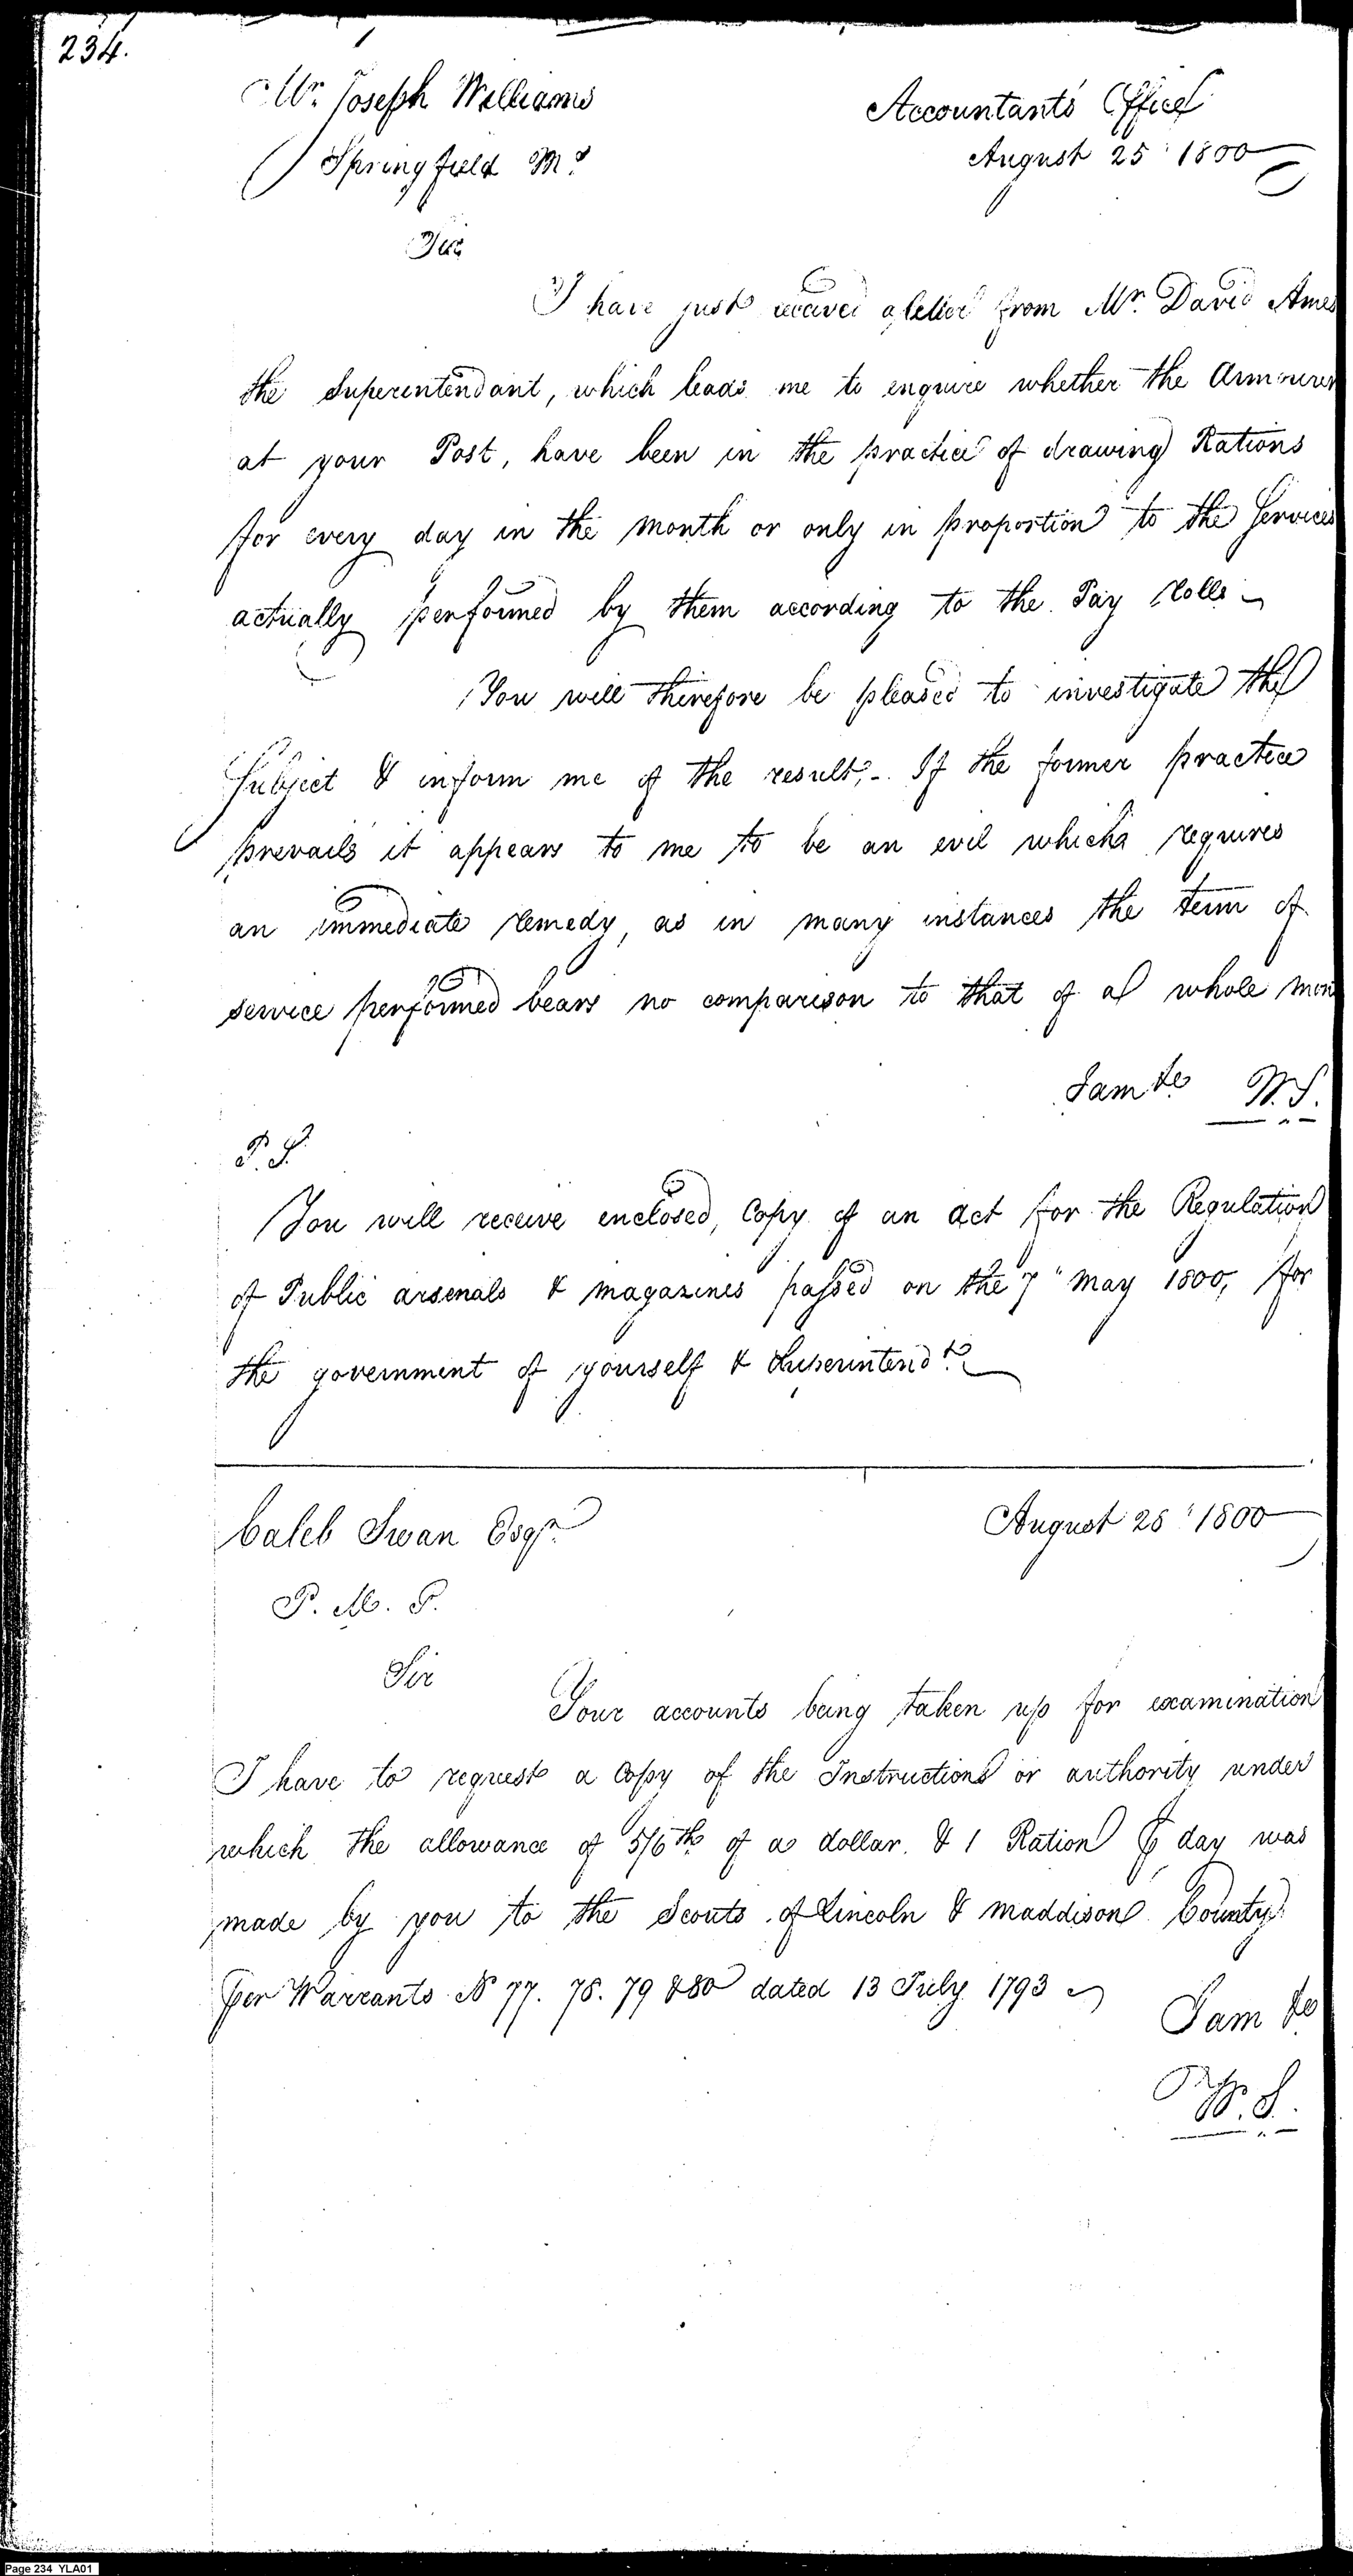 234.
Mr. Joseph Williams
Accountants Office
Springfield Ms.
August 25" 1800
Sir
I have just received a letter from Mr. David Ames
the Superentendant, which leads me to enquire whether the Armourers
at your Post, have been in the practice of drawing Rations
for every day in the month or only in proportion to the Services
actually performed by them according to the Pay Rolls
You will therefore be pleased to investigate the
Subject & inform me of the result;- If the former practice
prevails it appears to me to be an evil which requires
an immediate remedy, as in many instances the term of
service performed bears no comparison to that of a whole mon
I am &c W.S.
P.S.
You will receive enclosed, Copy of an act for the Regulation
of Public arsenals & magazines passed on the 7" May 1800, for
the government of yourself & Superintendt.
Caleb Swan Esqr.
August 26" 1800
P. M. G.
Sir
Your accounts being taken up for examination
I have to request a Copy of the Instructions or authority under
which the allowance of 5/6ths of a dollar. & 1 Ration day was
made by you to the Scouts of Lincoln & Maddison County
per Warrants No 77. 78. 79 & 80 dated 13 July 1793
I am &c
W.S.
Page 234 YLA01